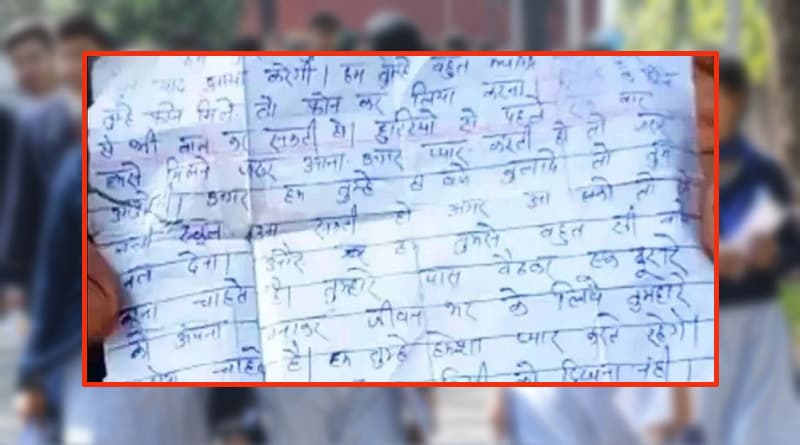 याद आया करेगी। हम तुम्हे बहुत
तुम्हे फोन मिले तो फोन कर लिया करना।
से भी बात कर सकती हो। छुट्टियो से पहले एक बार
हमसे मिलने जरुर आना अगर प्यार करती हो तो जरुर
आओगी। अगर हम तुम्हे 8 बजे बुलादे तो तुम
स्कूल आ सकती हो अगर आ सको तो
बता देना। और हम तुमसे बहुत सी बाते
करना चाहते है। तुम्हारे पास बैठकर एक दूसरे
को अपना बनाकर जीवन भर के लिये तुम्हारे
चाहते है। हम तुम्हे हमेशा प्यार करते रहेगे।
किसी को दिखाना नही।